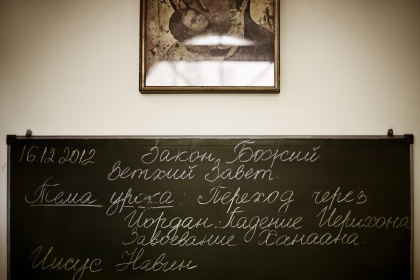 16.12.2012 Закон Божий
Ветхий Завет.
Тема урока: Переход через
Иордан. Падение Иерихона
Завоевание Ханаана.
Иисус Навин